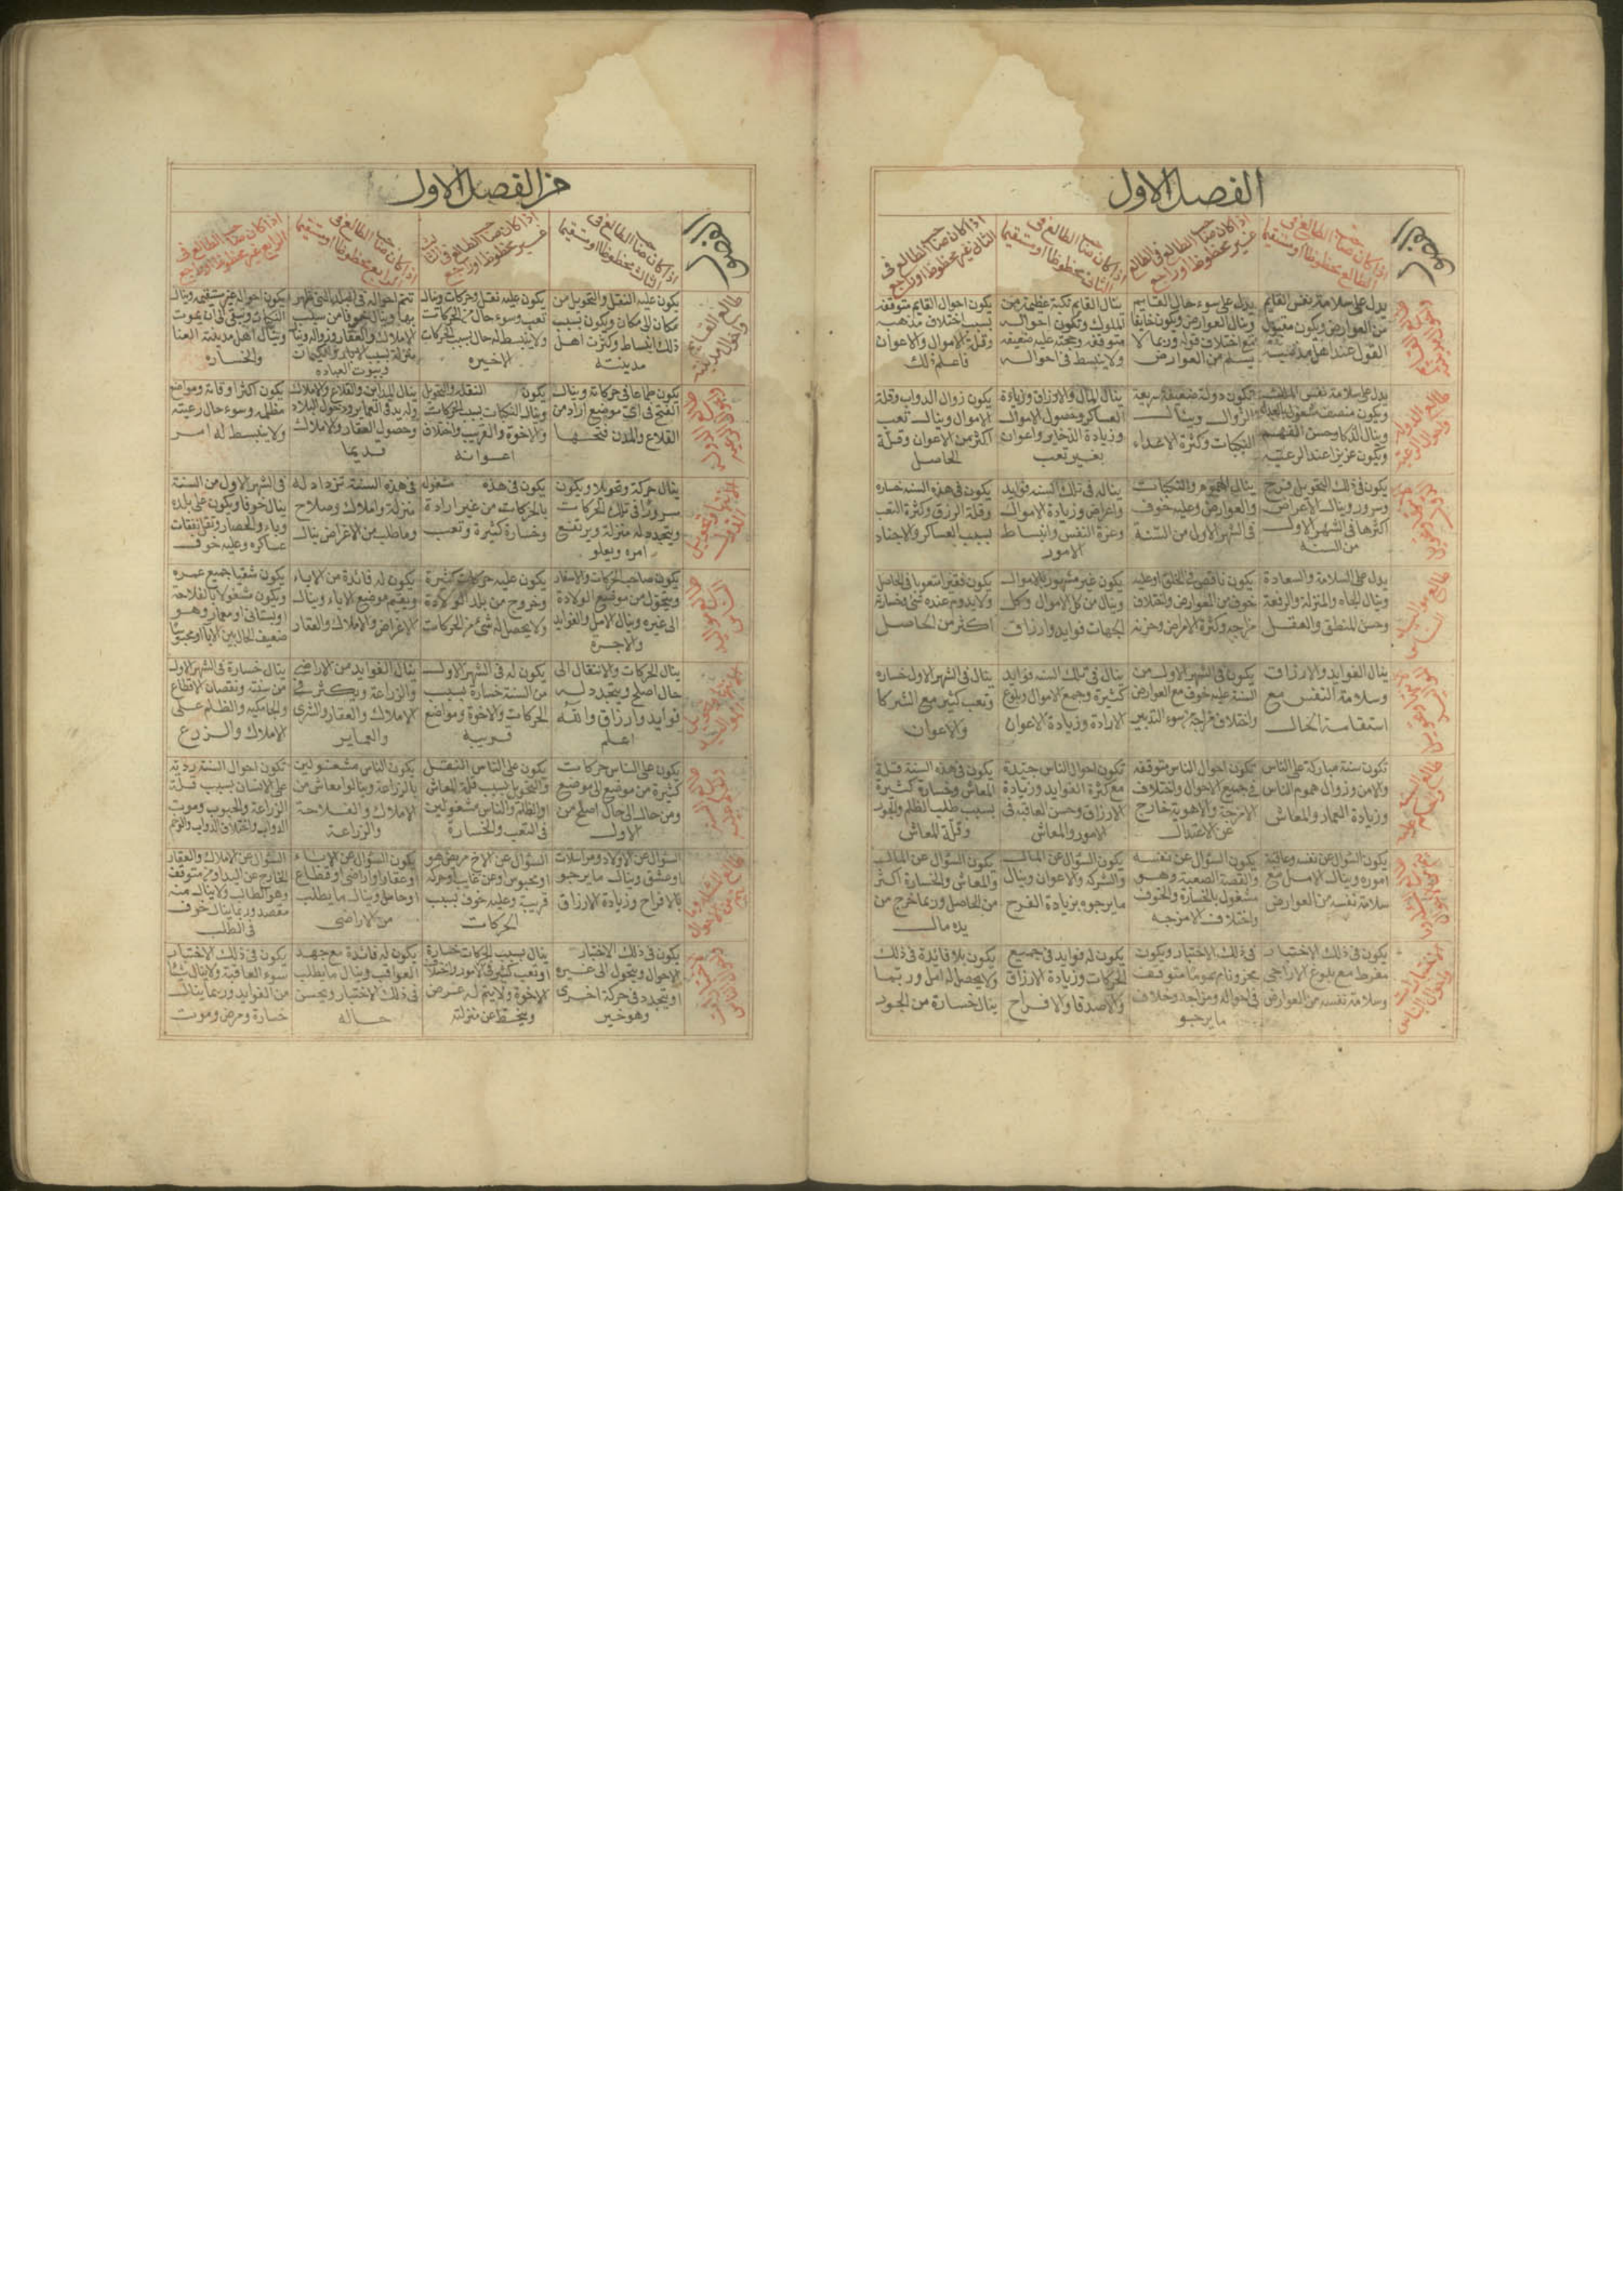 الفصل الاول
اذا كان صاحب الطالع فى
الطالع محظوظا او مستقيما
اذا كان صاحب الطالع فى الطالع
غير محظوظ او راجع
اذا كان صاحب الطالع فى
الثانى محظوظا او مستقيما
اذا كان صاحب الطالع فى
الثانى غير محظوظ او راجع
يدل على سلامة نفس القايم
من العوارض ويكون مقبول
القول عند اهل مدينته
يدل على سوء حال القايم
وينال العوارض ويكون خايفا
مع اختلاف قوله وربما لا
يسلم من العوارض
ينال القايم نكبة عظيمة من
الملوك وتكون احواله
متوقفه وحجته عليه ضعيفه
ولا ينبسط فى احواله
يكون احوال القايم متوقفه
بسبب اختلاف مذهبه
وقلة الاموال والاعوان
فاعلم ذلك
يدل على سلامة نفس الملك
وينال الذكا وحسن الفهم
ويكون عزيزا عند الرعية
تكون دولة ضعيفة سريعة
الزوال وينال
النكبات وكثرة الاعداء
ينال المال والارزاق وزيادة
العساكر وحصول الاموال
وزيادة الذخاير واعوان
بغير تعب
يكون زوال الدواب وقلة
الاموال وينال تعب
اكثر من الاعوان وقلة
الحاصل
يكون فى ذلك التحويل فرح
وسرور وينال الاعراض
اكثرها فى الشهر الاول
من السنة
ينال الهموم والنكبات
والعوارض وعليه خوف
فى الشهر الاول من السنة
يناله فى تلك السنه فوايد
واعراض وزيادة الاموال
وعزة النفس وانبساط
الامور
يكون فى هذه السنه خساره
وقلة الرزق وكثرة التعب
بسبب العساكر والاجناد
يدل على السلامة والسعادة
وينال الجاه والمنزلة والرفعة
وحسن المنطق والعقل
يكون ناقص فى الخلق او عليه
خوف من العوارض واختلاف
مزاجه وكثرة الامراض وحزينه
يكون غير مشهور بالاموال
وينال من كل الاموال وكل
الجهات فوايد وارزاق
يكون فقير امتعوبا فى الحاصل
ولا يدوم عنده شى وخسارة
اكثر من الحاصل
ينال الفوايد والارزاق
وسلامة النفس مع
استقامة الحال
يكون فى الشهر الاول من
السنة عليه خوف مع العوارض
واختلاف مزاجه بسوء التدبير
ينال فى تلك السنه فوايد
كثيرة وجمع الاموال وبلوغ
الارادة وزيادة الاعوان
ينال فى الشهر الاول خساره
وتعب كثير مع الشركا
والاعوان
تكون سنة مباركة على الناس
والامن وزوال هموم الناس
وزيادة الثمار والمعاش
تكون احوال الناس متوقفه
فى جميع الاحوال واختلاف
الامزجة والاهوية خارج
عن الاعتدال
تكون احوال الناس جيدة
مع كثرة الفوايد وزيادة
الارزاق وحسن العاقبة فى
الامور والمعاش
يكون فى هذه السنة قلة
المعاش وخسارة كثيرة
بسبب طلب الظلم والجور
وقلة المعاش
يكون السؤال عن نفسه وعاقبة
اموره وينال الامل مع
سلامة نفسه من العوارض
يكون السؤال عن نفسه
والقصة الصعبة وهو
مشغول بالخسارة والخوف
واختلاف الامزجه
يكون السؤال عن المال
والشركه والاعوان وينال
ما يرجوه بزيادة الفرح
يكون السؤال عن المال
والمعاش والخسارة اكثر
من الحاصل وربما خرج من
يده مال
يكون فى ذلك الاختيار
مفرط مع بلوغ الاراجى
وسلامة نفسه من العوارض
فى ذلك الاختيار ويكون
محزونا مهموما متوقف
فى احواله ومزاجه وخلاف
ما يرجو
يكون له فوايد فى جميع
الحركات وزيادة الارزاق
والاصدقا والافراح
يكون بلا فائدة فى ذلك
ولا يحصل له امل وربما
ينال خسارة من الجور
من الفصل الاول
اذا كان صاحب الطالع فى
الثالث محظوظا او مستقيما
اذا كان صاحب الطالع فى الثالث
غير محظوظ او راجع
اذا كان صاحب الطالع فى
الرابع محظوظا او مستقيما
اذا كان صاحب الطالع فى
الرابع غير محظوظ او راجع
يكون عليه النقل والتحويل من
مكان الى مكان ويكون بسبب
ذلك انبساط وكثرت اهل
مدينته
يكون عليه نقل وحركات وينال
تعب وسوء حال من الحركات
ولا ينبسط له حال بسبب الحركات
الاخيره
وبيوت العباده
وينال اهل مدينته العنا
والخساره
يكون شجاعا فى حركاته وينال
الفتح فى اى موضع اراد من
القلاع والمدن فتحها
يكون النقله والتحويل
وينال النكبات بسبب الحركات
والاخوة والقريب واختلاف
اعوانه
ينال المداين والقلاع والاملاك
وحصول العقار والاملاك
قديما
مظلمه وسوء حال رعيته
ولا ينبسط له امر
ينال حركة وتحويلا ويكون
مسرورا فى تلك الحركات
ويتجدد له منزلة ويرتفع
امره ويعلو
يكون فى هذه مشغوله
بالحركات من غير ارادة
وخسارة كثيرة وتعب
فى هذه السنة تزداد له
منزلة واملاك وصلاح
وما طلب من الاغراض ينال
فى الشهر الاول من السنة
ينال خوفا ويكون على بلده
وباء والحصار وتقل نفقات
عساكره وعليه خوف
يكون صاحب الحركات والاسفار
ويتحول من موضع الولادة
الى غيره وينال الامل والفوايد
والاجرة
يكون عليه حركات كثيرة
وخروج من بلد الولادة
ولا يحصل له شئ من الحركات
يكون له فائدة من الاباء
ويقيم موضع الاباء وينال
الاغراض والاملاك والعقار
يكون شقيا جميع عمره
ويكون مشغولا بالفلاحة
او بستانى او معمار وهو
ينال الحركات والانتقال الى
حال اصلح ويتجدد له
فوايد وارزاق والله
اعلم
يكون له فى الشهر الاول
من السنة خسارة بسبب
الحركات والاخوة ومواضع
قريبه
ينال الفوايد من الاراضى
والزراعة ويكثر فى
الاملاك والعقار والشرى
والعماير
ينال خسارة فى الشهر الاول
من سنته ونقصان الاقطاع
والجامكيه والظلم على
الاملاك والزرع
يكون على الناس حركات
كثيرة من موضع الى موضع
ومن حال الى حال اصلح من
الاول
يكون على الناس التنقل
والتحويل بسبب قلة المعاش
والظلمة والناس مشغولين
فى التعب والخسارة
يكون الناس مشغولين
بالزراعة وينالوا معاش من
الاملاك والفلاحة
والزراعة
تكون احوال السنة ردية
على الانسان بسبب قلة
الزراعة والحبوب وموت
السؤال عن الاولاد ومراسلات
او عشق وينال ما يرجو
بالافراح وزيادة الارزاق
السؤال عن الاخ مريض هو
او محبوس وعن غايب او حركة
قريبة وعليه خوف بسبب
الحركات
يكون السؤال عن الاباء
او عقار او اراضى او قطاع
او حامل وينال ما يطلب
من الاراضى
السؤال عن الاملاك والعقار
مقصده وربما ينال خوف
فى الطلب
يكون فى ذلك الاختيار
الاحوال ويتحول الى غيره
او يتجدد فى حركة اخرى
وهو خير
ينال بسبب الحركات خسارة
الاخوة ولا يتم له غرض
وينحط عن منزلته
يكون له فائدة مع جهد
العواقب وينال ما يطلب
فى ذلك الاختيار ويحسن
حاله
يكون فى ذلك الاختيار
سوء العاقبة ولا ينال شيا
من الفوايد وربما ينال
خسارة ومرض وموت